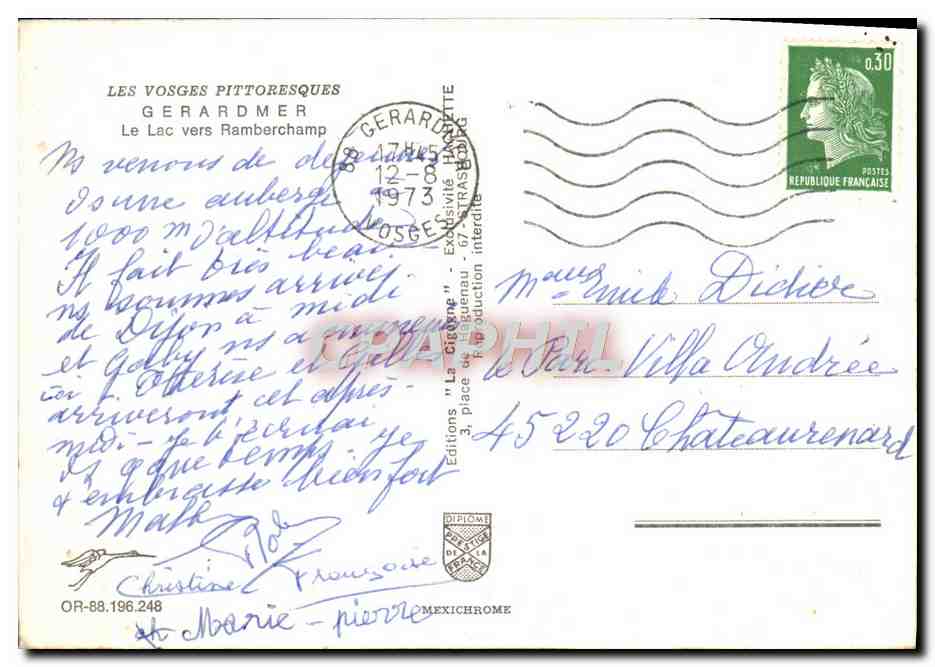 LES VOSGES PITTORESQUES
GERARDMER
Le Lac vers Ramberchamp
Ns venons de déjeuner
ds une auberge
1000 m d'altitude
Il fait très beau
ns sommes arrivés
de Dijon à midi
et Gaby ns a
ici. Thérèse et Gilles
arriveront cet après-
midi - Je t'écrirai
ds quelques temps. Je
t'embrasse bien fort
Christine Françoise
et Marie-pierre
OR-88.196.248
MEXICHROME
DIPLOME
PRESTIGE
DE LA
FRANCE
Editions "La Cigogne" - Exclusivité HACHETTE
3, place de Haguenau - 67-STRASBOURG
Reproduction interdite
88 GERARDMER
17H45
12-8
1973
VOSGES
0,30
POSTES
REPUBLIQUE FRANÇAISE
CPAPHIL
Emile Didier
le Parc Villa Andrée
45220 Chateaurenard